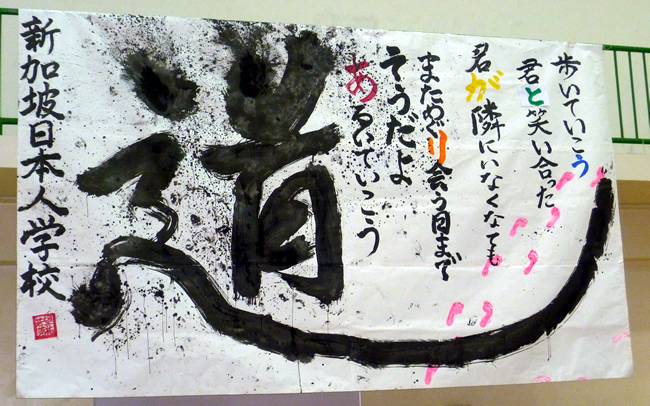 歩いていこう
君と笑い合った
君が隣にいなくなっても
まためぐり会う日まで
そうだよ
あるいていこう
道
新加坡日本人学校